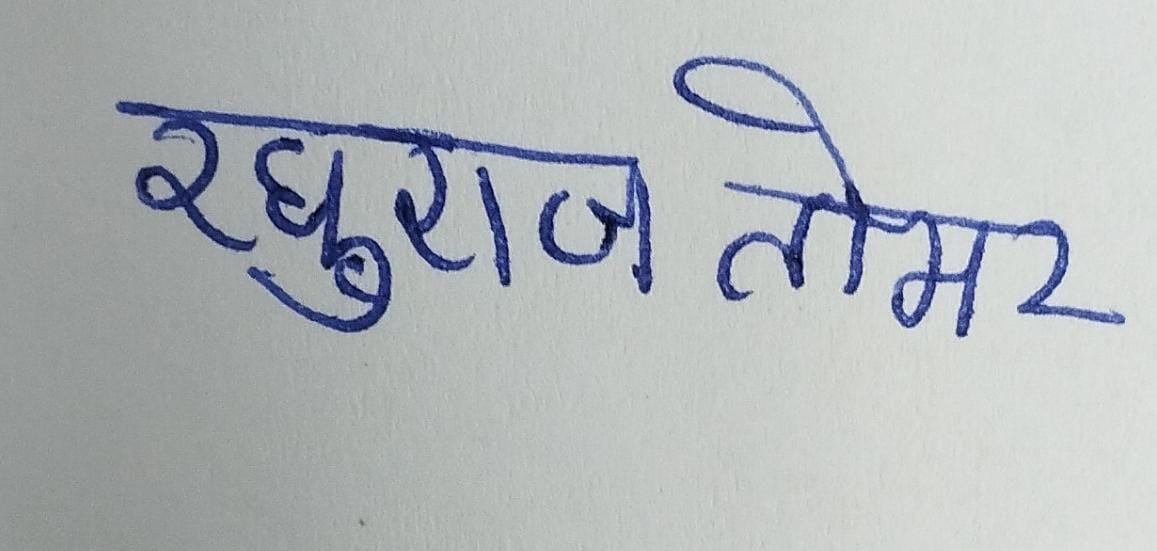 रघुराज तोमर